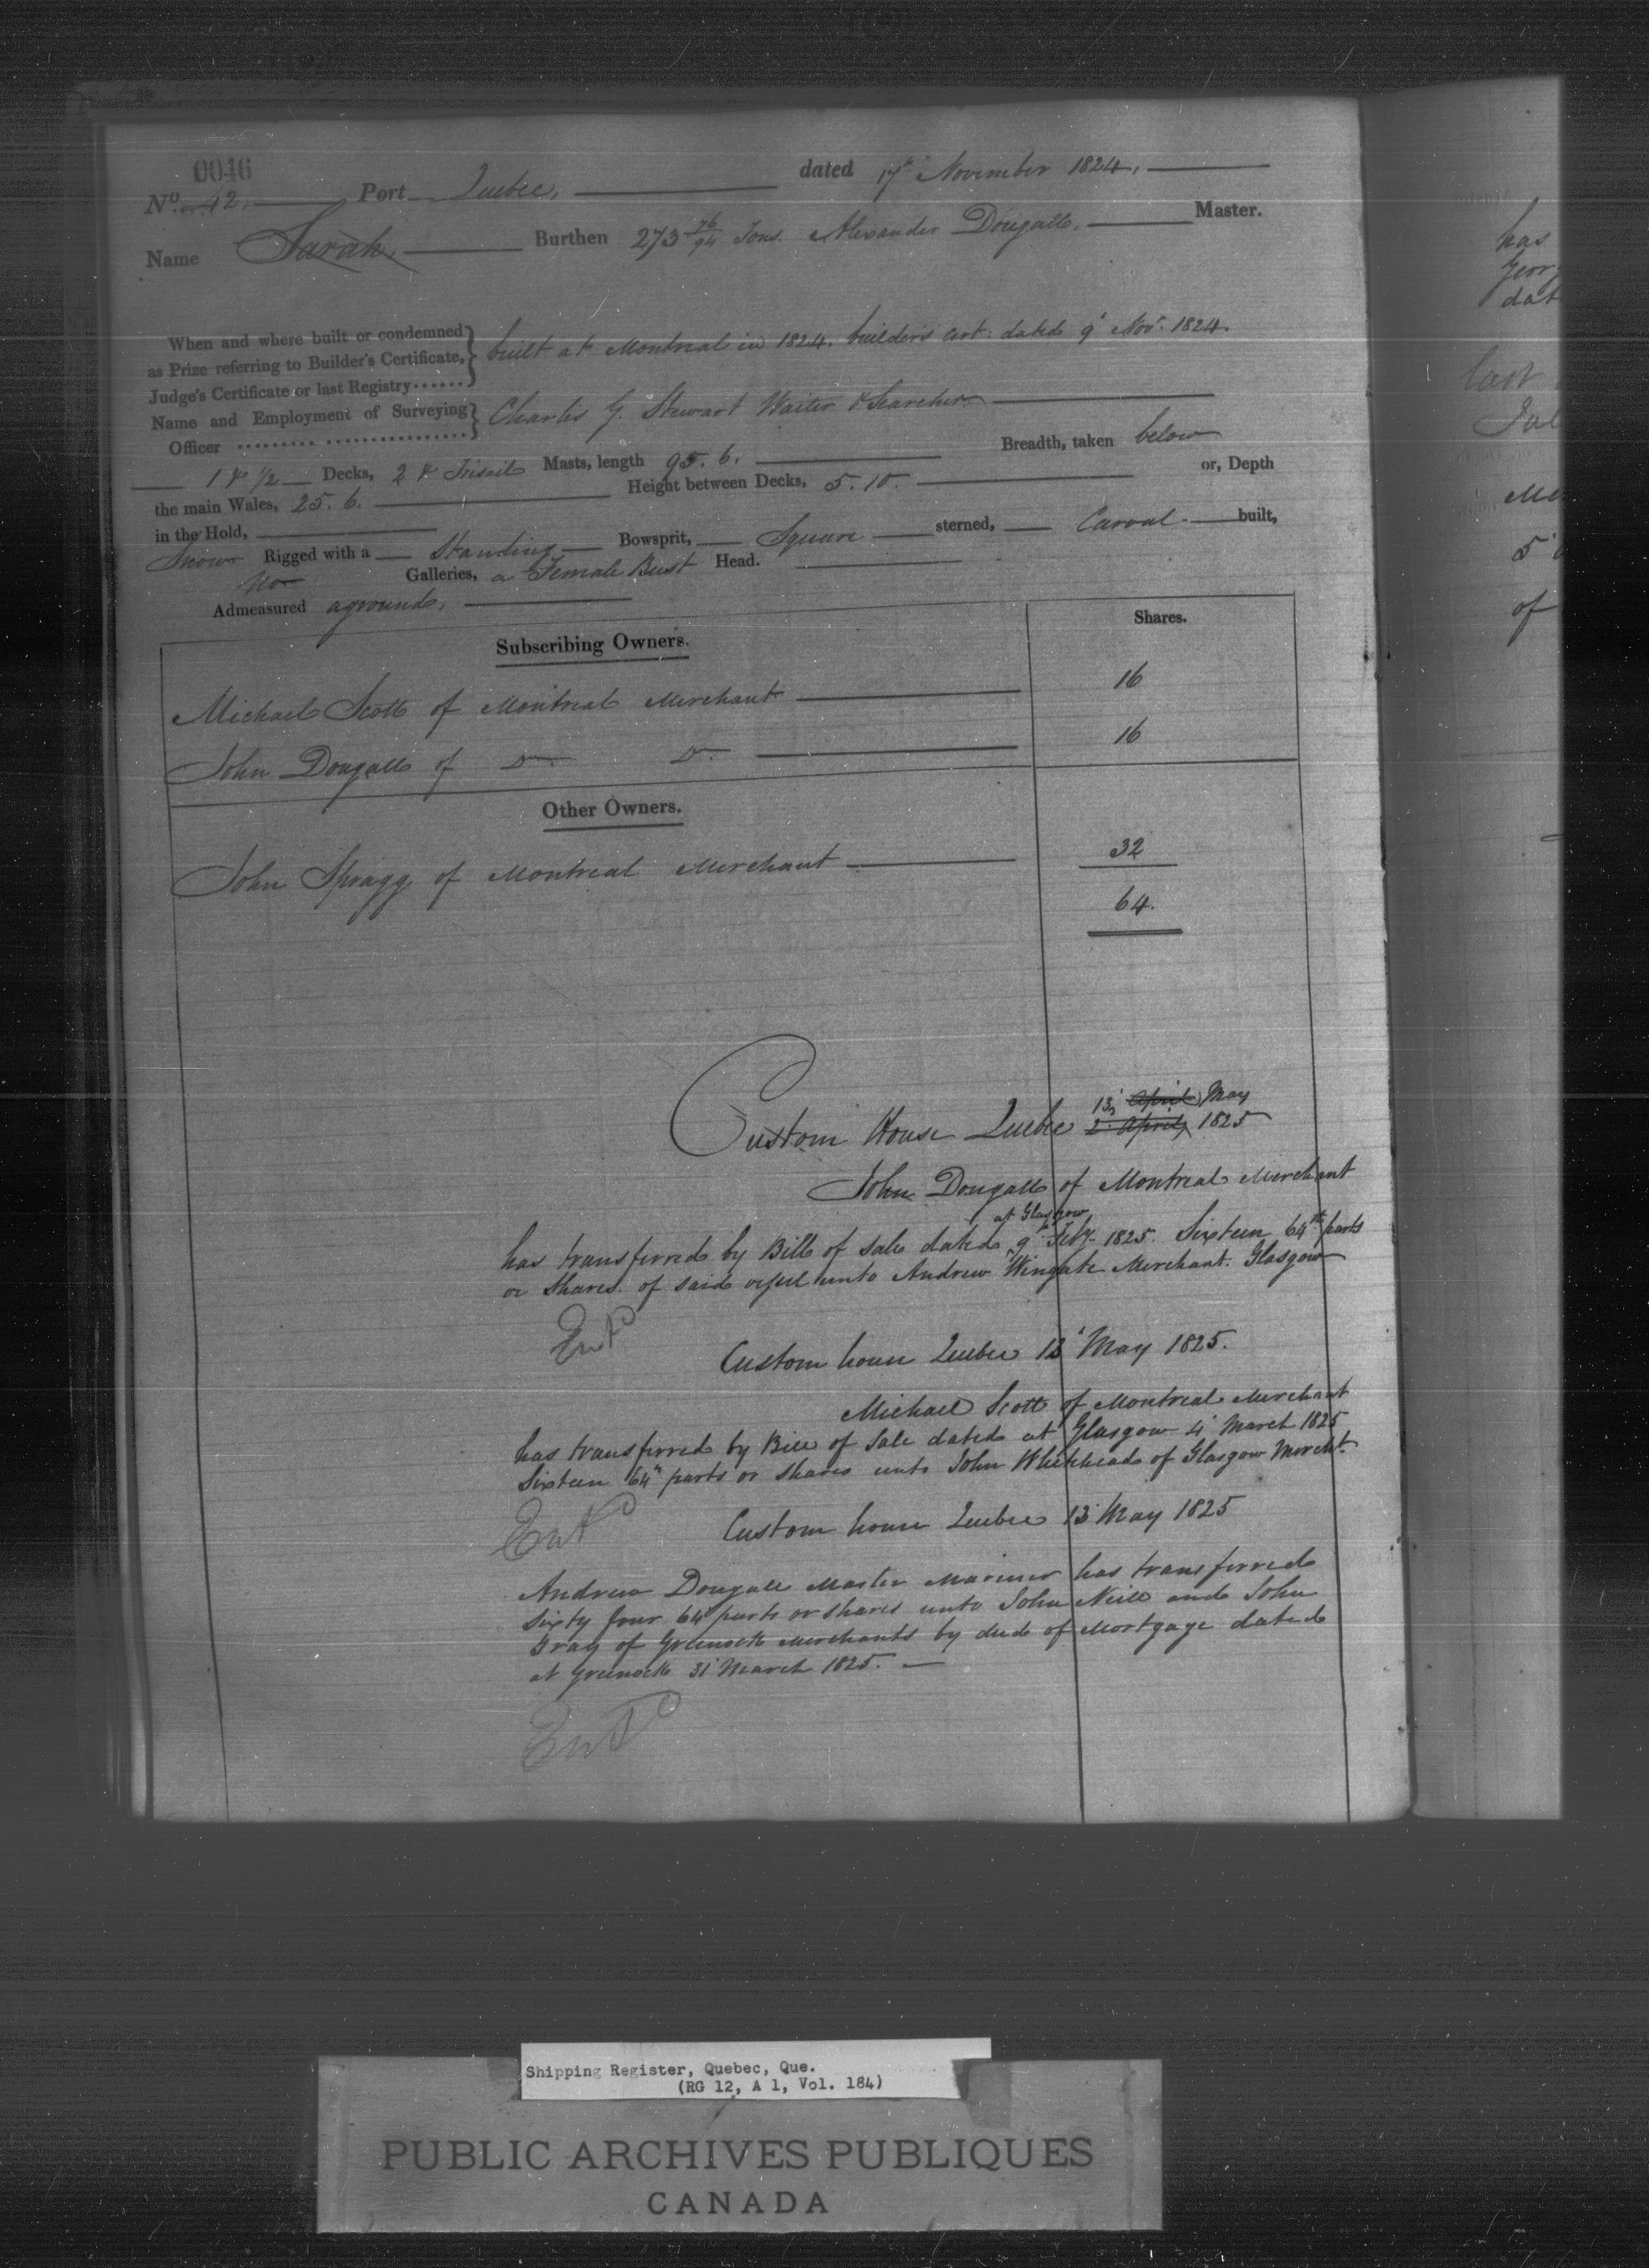 0046
No. 42. Port Quebec, dated 17th November 1824.
Name Sarah, Burthen 273 76/94 Tons. Alexander Dougall. Master.
When and where built or condemned
as Prize referring to Builder's Certificate,
Judge's Certificate or last Registry......
built at Montreal in 1824. builders cert: dated 9' Novr. 1824.
Name and Employment of Surveying
Officer
Charles G. Stewart Waiter & Searcher
1 & 1/2 Decks, 2 & Trisail Masts, length 95. 6. Breadth, taken below
the main Wales, 25. 6. Height between Decks, 5. 10. or, Depth
in the Hold,
Snow Rigged with a Standing Bowsprit, Square sterned, Carval built,
No Galleries, a Female Bust Head.
Admeasured aground,
Subscribing Owners. Shares.
Michael Scott of Montreal Merchant 16
John Dougall of Do. Do. 16
Other Owners.
John Spragg of Montreal Merchant 32
64.
13, April May
Custom House Quebec 2. April, 1825
John Dougall of Montreal Merchant
at Glasgow
has transferred by Bill of Sale dated 9th Feby. 1825. Sixteen 64th parts
or Shares of said vessel unto Andrew Wingate Merchant. Glasgow
Entd
Custom house Quebec 13' May 1825.
Michael Scott of Montreal Merchant
has transferred by Bill of Sale dated at Glasgow 4' March 1825
Sixteen 64th parts or shares unto John Whitehead of Glasgow Mercht.
Entd
Custom house Quebec 13' May 1825
Andrew Dougall Master Mariner has transferred
Sixty four 64 parts or shares unto John Neill and John
Gray of Greenock Merchants by deed of Mortgage dated
at Greenock 31' March 1825.
Entd
has
Geor
dat
last
of
Shipping Register, Quebec, Que.
(RG 12, A 1, Vol. 184)
PUBLIC ARCHIVES PUBLIQUES
CANADA